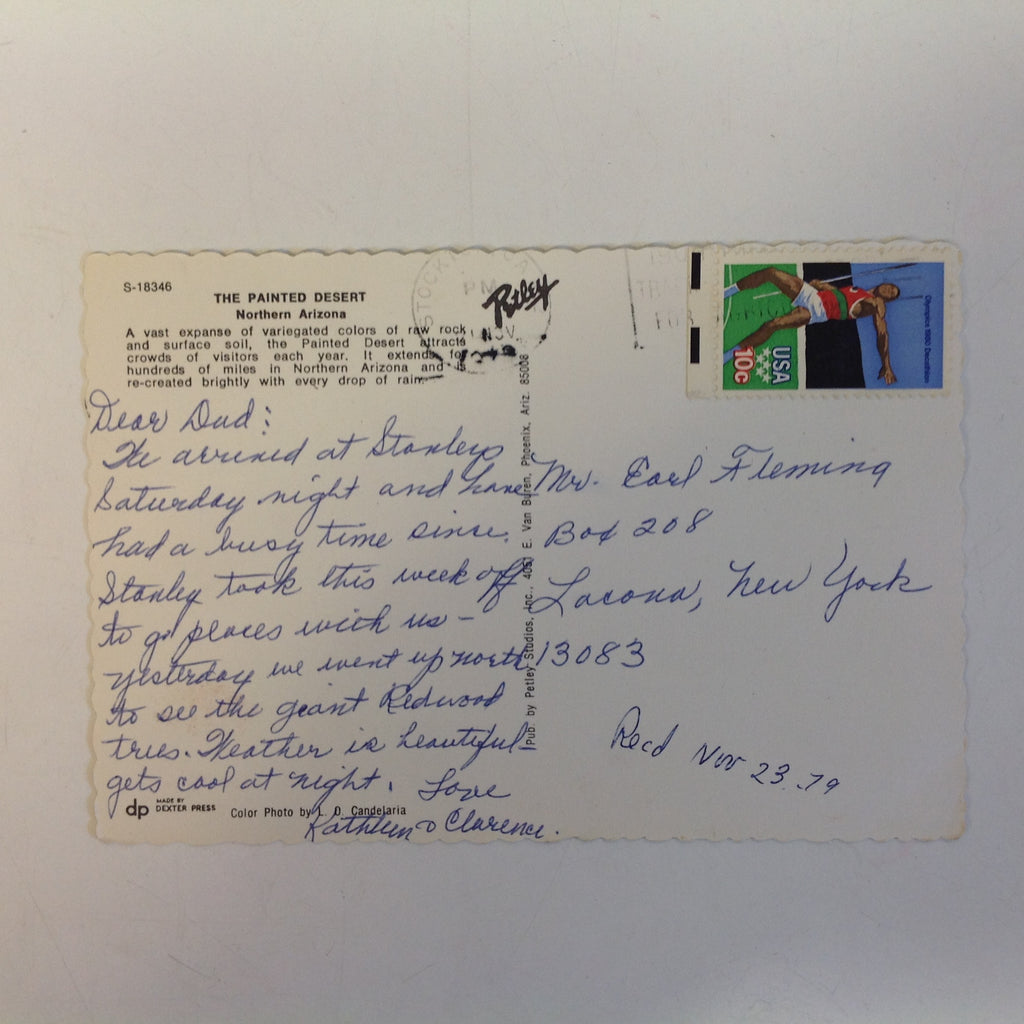 S-18346
THE PAINTED DESERT
Northern Arizona
A vast expanse of variegated colors of raw rock
and surface soil, the Painted Desert attracts
crowds of visitors each year. It extends for
hundreds of miles in Northern Arizona and is
re-created brightly with every drop of rain.
Dear Dad:
We arrived at Stanleys
Saturday night and have
had a busy time since.
Stanley took this week off
to go places with us -
yesterday we went up north
to see the giant Redwood
trees. Weather is beautiful -
gets cool at night. Love
Kathleen & Clarence.
dp MADE BY
DEXTER PRESS
Color Photo by L. D. Candelaria
Pub. by Petley Studios, Inc., 4051 E. Van Buren, Phoenix, Ariz. 85008
Petley
PM
NOV
Olympics 1980 Decathlon
USA
10c
Mr. Earl Fleming
Box 208
Lacona, New York
13083
Recd Nov 23.79